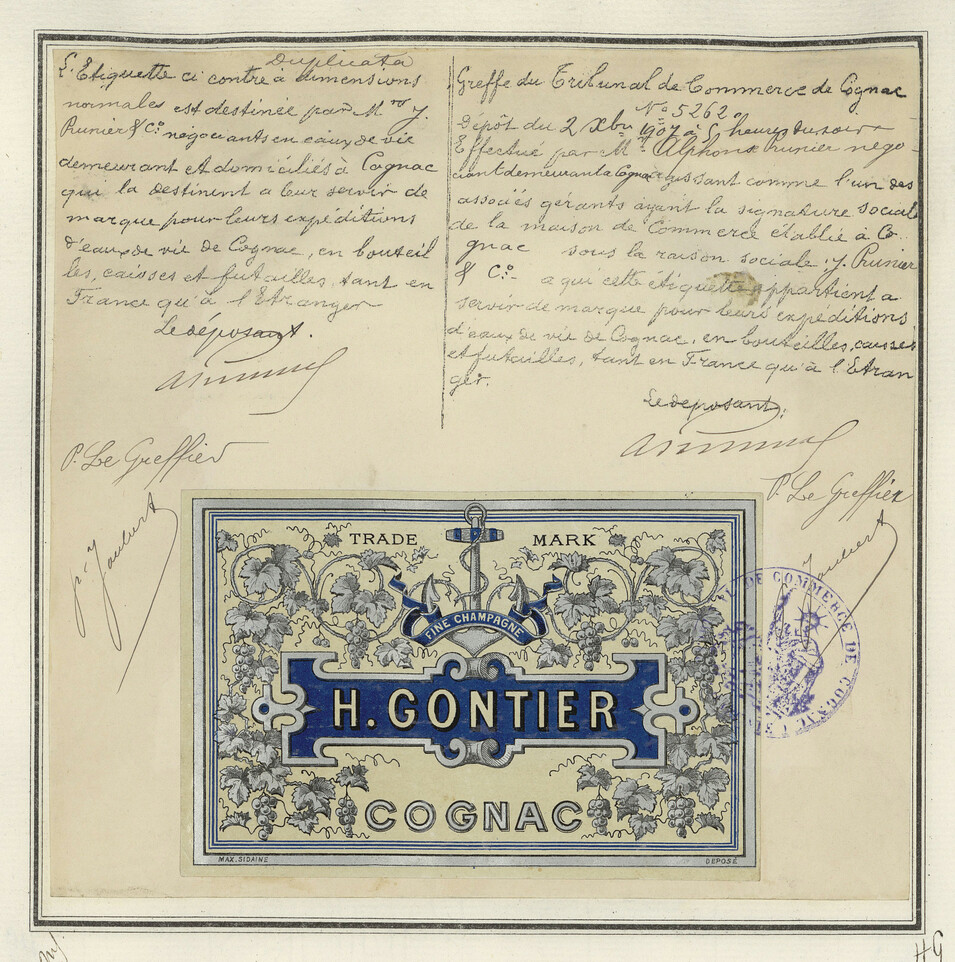 Duplicata
L'Etiquette ci contre à dimensions
normales est destinée par Mrs J.
Prunier & Co négociants en eaux de vie
demeurant et domiciliés à Cognac
qui la destinent a leur servir de
marque pour leurs expéditions
d'eaux de vie de Cognac, en bouteil
les, caisses et futailles, tant en
France qu'à l'Etranger
Le déposant.
P. Le Greffier
Joubert
Greffe du Tribunal de Commerce de Cognac
No 5262
Dépôt du 2 Xbre 1907 à 5 heures du soir
Effectué par Mr Alphonse Prunier négo-
ciant demeurant a Cognac agissant comme l'un des
associés gérants ayant la signature sociale
de la maison de Commerce établie à Co..
gnac sous la raison sociale J. Prunier
& Co- a qui cette étiquette appartient a
servir de marque pour leurs expéditions
d'eaux de vie de Cognac, en bouteilles, caisses
et futailles, tant en France qu'à l'Etran
ger.
Le déposant.
P. Le Greffier
Joubert
TRADE MARK
FINE CHAMPAGNE
H. GONTIER
COGNAC
MAX. SIDAINE
DEPOSÉ
DE COMMERCE DE COGNAC
HG